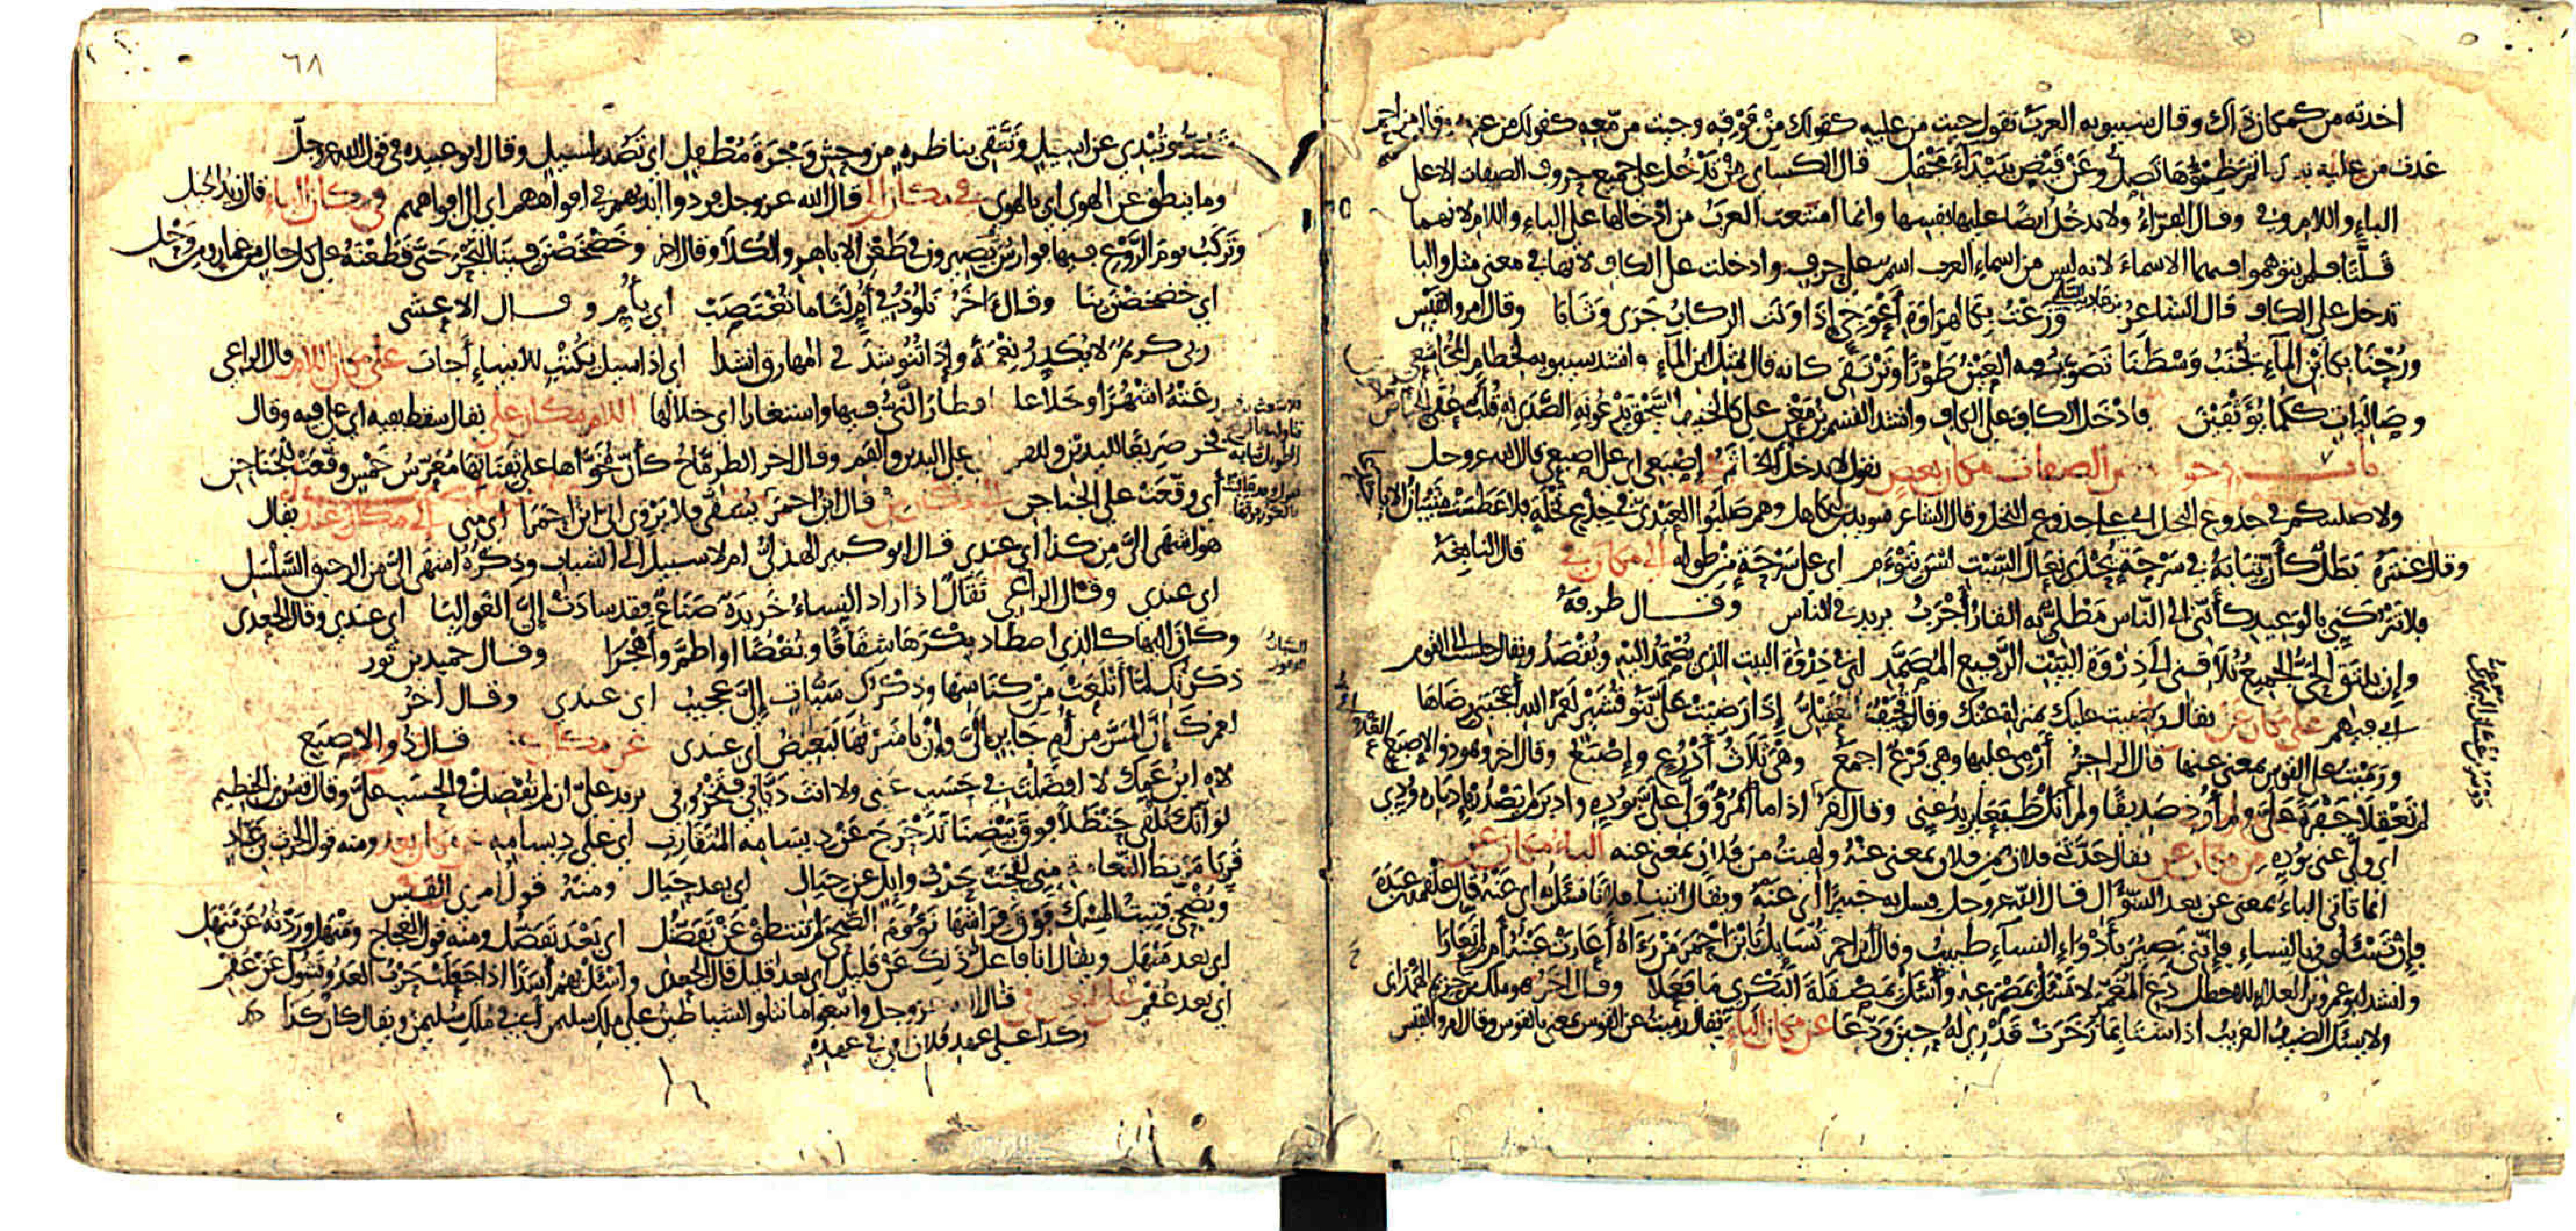 اخذته من كمكان ذاك وقال سيبويه العرب تقول جيت من عليه كقولك من فوقه وجيت من معه كقولك من عنده وقال مزاحم
غدت من عليه بعد ما تم ظمؤها تصل وعن قيض ببيداء مجهل قال الكساى من تدخل على جميع حروف الصفات الا على
الباء واللام وفى وقال الفراء ولا تدخل ايضا عليها نفسها وانما امتنعت العرب من ادخالها على الباء واللام لانهما
قلتا فلم يتوهموا فيهما الاسماء لانه ليس من اسماء العرب اسم على حرف وادخلت على الكاف لانها فى معنى مثل والبا
تدخل على الكاف قال الشاعر وزعت بكالهراوة اعوجي اذا ونت الركاب جرى وثابا وقال امرو القيس
ورحنا بكابن الماء يجنب وسطنا تصوب فيه العين طورا وترتقى كانه قال بمثل ابن الماء وانشد سيبويه لخطام المجاشعى
وصاليات ككما يؤثفين فادخل الكاف على الكاف وانشد القسم بن معن على كالخنيف السحق يدعو به الصدى له قلب عفى الحياض
باب دخول من الصفات مكان بعض تقول لا يدخل الخاتم فى اصبعى اى على اصبعى قال الله عز وجل
ولاصلبنكم فى جذوع النخل اى على جذوع النخل وقال الشاعر سويد بن ابى كاهل وهم صلبوا العبدى فى جذع نخلة فلا عطست شيبان الا باجدعا
وقال عنترة بطل كأن ثيابه فى سرحة يحذى نعال السبت ليس بتوءم اى على سرحة من طوله الى مكان فى قال النابغة
فلا تتركنى بالوعيد كأننى الى الناس مطلى به القار أجرب يريد فى الناس وقال طرفة
وإن يلتق الحى الجميع تلاقنى الى ذروة البيت الرفيع المصمد اى فى ذروة البيت الذى يصمد اليه ويقصد ويقال جلست الى القوم
اى فيهم على مكان عن يقال رضيت عليك بمنزلة عنك وقال قحيف العقيلى إذا رضيت على بنو قشير لعمر الله أعجبنى رضاها
ورميت على القوس بمعنى عنها قال الراجز أرمى عليها وهى فرع اجمع وهى ثلاث أذرع وإصبع وقال اخر وهو ذو الاصبع
لم تعقلا جفرة على ولم أوذ صديقا ولم أنل طبعا يريد عنى وقال اخر اذا ما امرؤ ولى على بوده وادبر لم يصدر بإدباره ودى
اى ولى عنى بوده من مكان عن يقال حدثنى فلان من فلان بمعنى عنه ولهيت من فلان بمعنى عنه الباء مكان عن
انما تاتى الباء بمعنى عن بعد السؤال قال الله عز وجل فسل به خبيرا اى عنه ويقال اتينا فلانا نسئل به اى عنه قال علقمة بن عبدة
فإن تسئلونى بالنساء فإننى بصير بأدواء النساء طبيب وقال ابن احمر تسايل بابن احمر من رءاه أعارت عينه أم لم تعارا
وانشد ابو عمرو بن العلاء للاخطل دع المغمر لا تسئل بمصرعه واسئل بمصقلة البكرى ما فعلا وقال اخر هو ملك بن حريم الهمدانى
ولا يسئل الضيف الغريب اذا شتا بما زخرت قدرى له حين ودعا عن مكان الباء يقال رميت عن القوس بمعنى بالقوس وقال امرو القيس
٦٨
تصد وتبدى عن اسيل وتتقى بناظرة من وحش وجرة مطفل اى تصد باسيل وقال ابو عبيدة فى قول الله عز وجل
وما ينطق عن الهوى اى بالهوى فى مكان الى قال الله عز وجل فردوا ايديهم فى افواههم اى الى افواههم فى مكان الباء قال زيد الخيل
وتركب يوم الروع فيها فوارس بصيرون فى طعن الاباهر والكلا وقال اخر وخضخضن فينا البحر حتى قطعنه على كل حال من غمار ومن وحل
اى خضخضن بنا وقال ءاخر نلوذ فى أم لنا ما تغتصب اى بأم وقال الاعشى
ربى كريم لا يكدر نعمة وإذا تنوشد فى المهارق انشدا اى اذا سيل بكتب الانبياء أجاب على مكان اللام قال الراعى
رعته اشهرا وخلا عليها فطار النى فيها واستغارا اى خلا لها اللام مكان على يقال سقط لفيه اى على فيه وقال
فخر صريعا لليدين وللفم على اليدين والفم وقال اخر الطرماح كأن مخواها على ثفناتها معرس خمس وقعت للجناجن
اى وقعت على الجناجن الى مكان من قال ابن احمر يسقى فلا يروى الى ابن احمرا اى منى الى مكان عند يقال
هو اشهى الى من كذا اى عندى قال ابو كبير الهذلى ام لا سبيل الى الشباب وذكره اشهى الى من الرحيق السلسل
اى عندى وقال الراعى ثقال اذا راد النساء خريدة صناع فقد سادت إلى الغوانيا اى عندى وقال الجعدى
وكان اليها كالذى اصطاد بكرها شقاقا وبغضا او اطم وأهجرا وقال حميد بن ثور
ذكرتك لما أتلعت من كناسها وذكرك سبات إلى عجيب اى عندى وقال آخر
لعمرك إن المس من أم جابر الى وإن باشرتها لبغيض اى عندى عن مكان على قال ذو الاصبع
لاه ابن عمك لا افضلت فى حسب عنى ولا انت ديانى فتخزونى يريد على ان لم تفضل فى الحسب على وقال قيس بن الخطيم
لو انك تلقى حنظلا فوق بيضنا تدحرج عن ذى سامه المتقارب اى على ذى سامه عن مكان بعد ومنه قول الحرث بن عباد
قربا مربط النعامة منى لقحت حرب وايل عن حيال اى بعد حيال ومنه قول امرى القيس
ويضحى فتيت المسك فوق فراشها نؤوم الضحى لم تنتطق عن تفضل اى بعد تفضل ومنه قول العجاج ومنهل وردته عن منهل
اى بعد منهل ويقال انا فاعل ذلك عن قليل اى بعد قليل قال الجعدى واسئل بهم أسدا اذا جعلت حرب العدو تشول عن عقم
اى بعد عقم على مكان فى قال الله عز وجل واتبعوا ما تتلوا الشياطين على ملك سليمن اى فى ملك سليمن ويقال كان كذا
وكذا على عهد فلان اى فى عهده